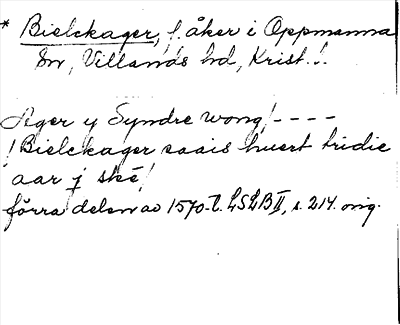 * Bielckager, f. åker i Oppmanna
sn, Villands hd, Krist. l.
Ager y Syndre wong/ - - - -
/Bielckager saais huert tridie
aar j skè/
förra delen av 1570-t. LSLB II, s. 214. orig.